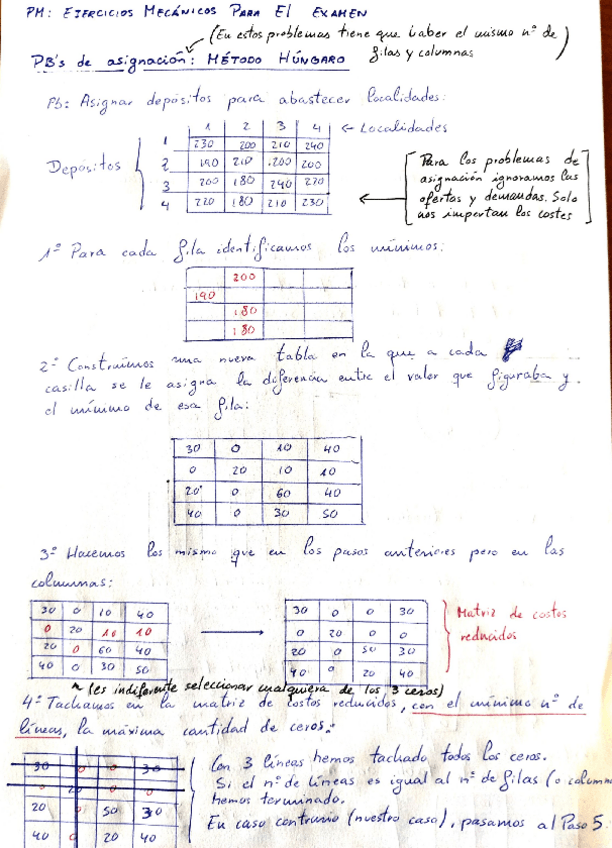 PM: EJERCICIOS MECÁNICOS PARA El EXAMEN
(En estos problemas tiene que haber el mismo nº de
filas y columnas)
PB's de asignación: MÉTODO HÚNGARO
Pb: Asignar depósitos para abastecer localidades:
1 2 3 4 ← Localidades
1 230 200 210 240
Depósitos 2 190 210 200 200
3 200 180 240 220
4 220 180 210 230
Para los problemas de
asignación ignoramos las
ofertas y demandas. Solo
nos importan los costes
1º Para cada fila identificamos los mínimos:
200
190
180
180
2º Construimos una nueva tabla en la que a cada
casilla se le asigna la diferencia entre el valor que figuraba y
el mínimo de esa fila:
30 0 10 40
0 20 10 10
20 0 60 40
40 0 30 50
3º Hacemos los mismo que en los pasos anteriores pero en las
columnas:
30 0 10 40
0 20 10 10
20 0 60 40
40 0 30 50
30 0 0 30
0 20 0 0
20 0 50 30
40 0 20 40
Matriz de costos
reducidos
(es indiferente seleccionar cualquiera de los 3 ceros)
4º Tachamos en la matriz de costos reducidos, con el mínimo nº de
líneas, la máxima cantidad de ceros:
30 0 0 30
0 20 0 0
20 0 50 30
40 0 20 40
Con 3 líneas hemos tachado todos los ceros.
Si el nº de líneas es igual al nº de filas (o column
hemos terminado.
En caso contrario (nuestro caso), pasamos al Paso 5.